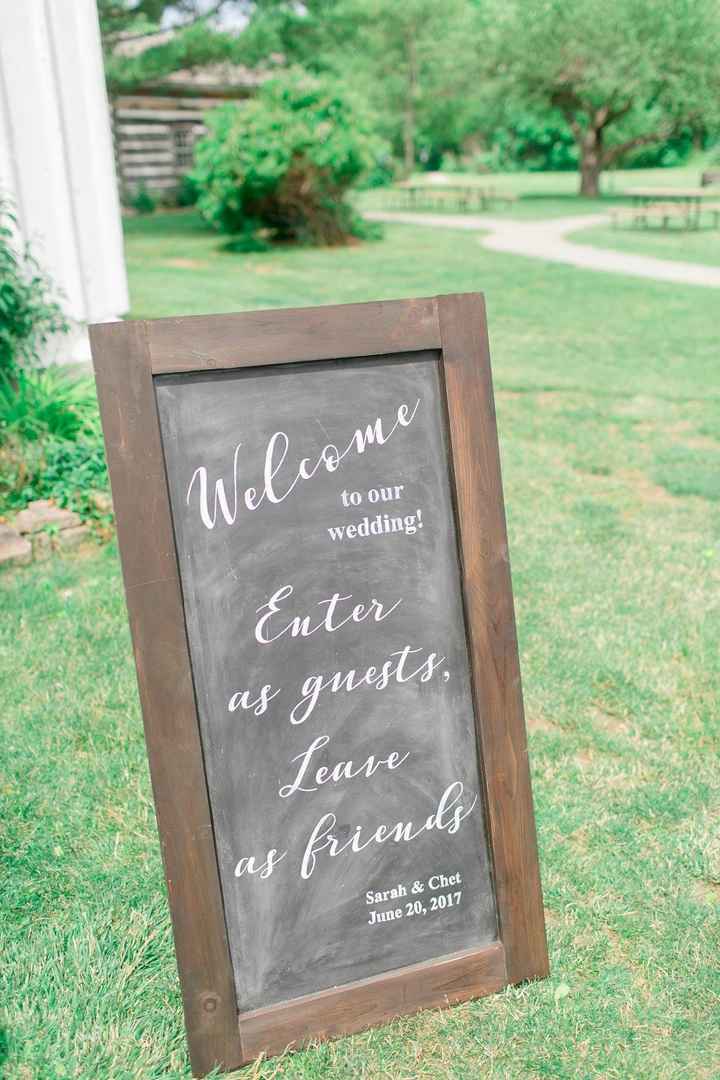 Welcome
to our
wedding!
Enter
as guests,
Leave
as friends
Sarah & Chet
June 20, 2017